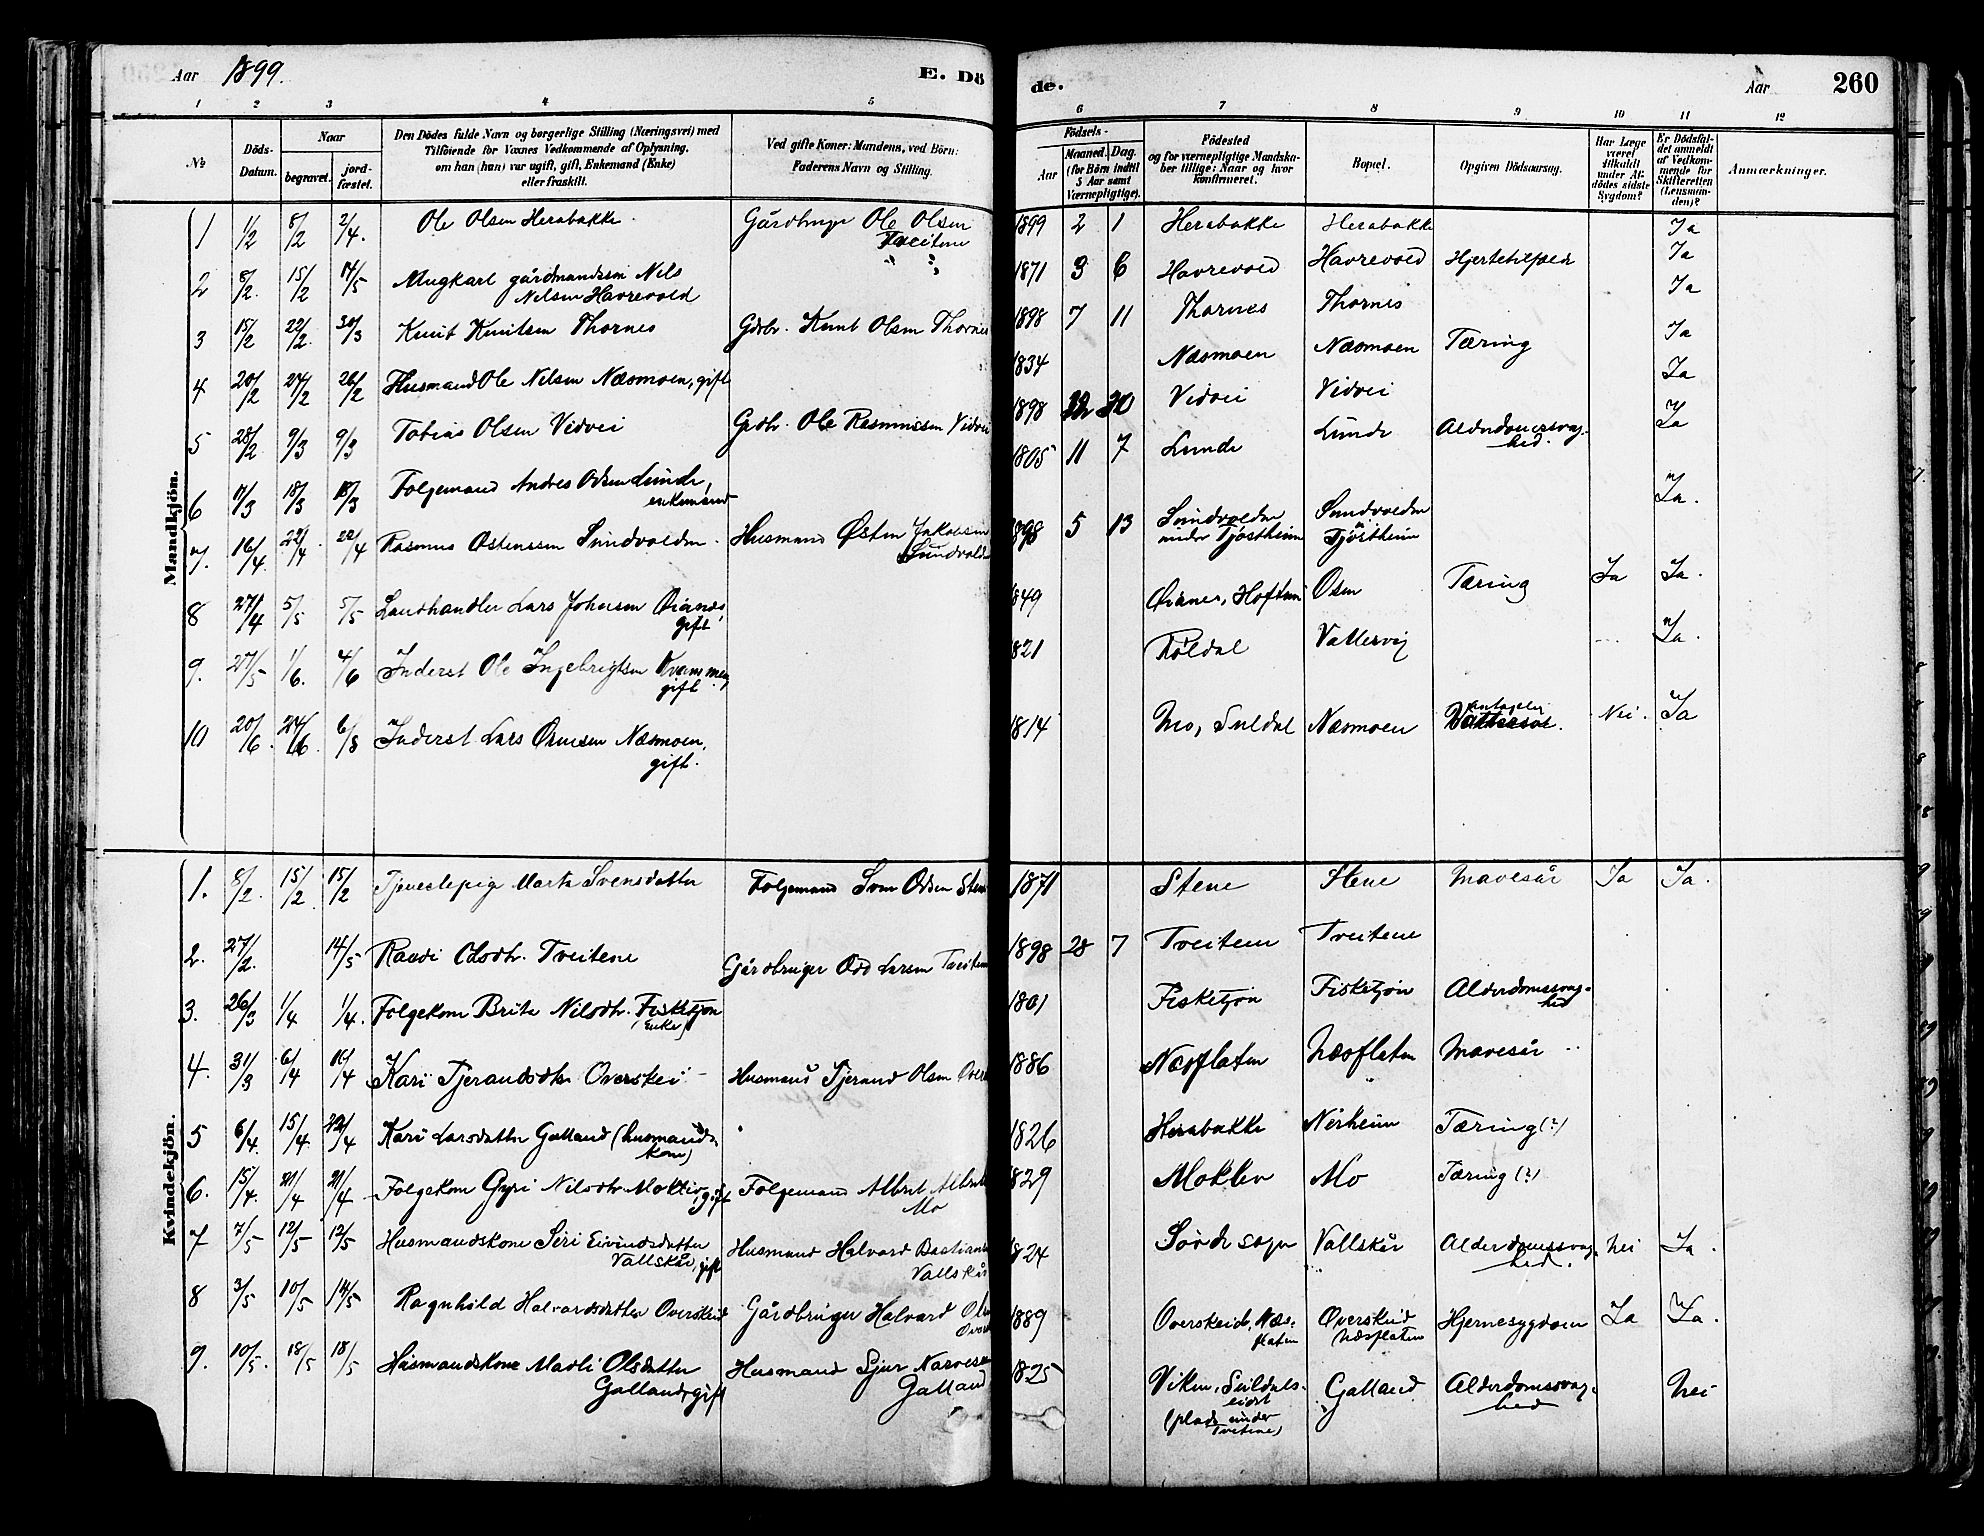 Aar 1899.
E. Dö
de.
Aar
260
1 2 3 4 5 6 7 8 9 10 11 12
№
Döds-Datum.
Naar
begravet.
jord-fæstet.
Den Dödes fulde Navn og borgerlige Stilling (Næringsvei) med
Tilföiende for Voxnes Vedkommende af Oplysning,
om han (hun) var ugift, gift, Enkemand (Enke)
eller fraskilt.
Ved gifte Koner: Mandens, ved Börn:
Faderens Navn og Stilling.
Födsels-
Aar
Maaned. Dag.
(for Börn indtil
5 Aar samt
Værnepligtige).
Födested
og for værnepligtige Mandska-
ber tillige: Naar og hvor
konfirmeret.
Bopæl.
Opgiven Dödsaarsag.
Har Læge
været
tilkaldt
under Af-
dödes sidste
Sygdom?
Er Dödsfal-
det anmeldt
af Vedkom-
mende for
Skifteretten
(Lensman-
den)?
Anmærkninger.
Mandkjön.
1 1/2 8/2 2/4. Ole Olsen Herabakke. Gårdbruger Ole Olsen Tveitene 1899 2 1 Herabakke Herabakke Ja
2 8/2. 15/2 14/5 Ungkarl gårdmandssøn Nils Nilsen Havrevold " " 1871 3 6 Havrevold Havrevold Hjertetilfælde Ja
3 15/2 22/2. 30/3 Knut Knutsen Thornes Gdbr. Knut Olsen Thornes 1898 7 11 Thornes Thornes Ja
4 20/2 27/2 26/2 Husmand Ole Nilsen Næsmoen, gift 1834 Næsmoen Næsmoen Tæring Ja
5 28/2 9/3 9/3 Tobias Olsen Vidvei Grdbr. Ole Rasmussen Vidvei 1898 12 20 Vidvei Vidvei Ja
6 11/3 18/3 18/3 Folgemand Andres Odsen Lunde, enkemand 1805 11 7 Lunde Lunde Alderdomssvaghed. Ja
7. 16/4. 22/4. 22/4 Rasmus Østensen Sundvolden. Husmand Østen Jakobsen Sundvolden 1898 5 13 Sundvolden under Tjøstheim Sundvolden Tjøstheim Ja.
8 27/4 5/5 5/5 Landhandler Lars Johnsen Øianes, gift 1849 Øianes, Hoftun Osen Tæring Ja Ja.
9. 27/5 1/6. 4/6 Inderst Ole Ingebrigtsen gift. 1821 Røldal Vattersvig Ja.
10 20/6. 24/6. 6/8 Inderst Lars Næsmoen, gift. 1814 Mo, Suldal Næsmoen Nei. Ja
Kvindekjön.
1. 8/2. 15/2 15/2 Tjenestepige Marta Svensdatter Folgemand Sven Odsen Stene 1871 Stene Stene Mavesår Ja Ja.
2. 27/2. 14/5 Raadi Odsdtr. Tveitene Gårdbruger Odd Larsen Tveitene 1898 28 7 Tveitene Tveitene
3. 26/3 1/4 1/4. Folgekone Brita Nilsdtr. Fisketjøn (Enke) 1801 Fisketjøn Fisketjøn Alderdomssvaghed
4. 31/3 6/4 16/4 Kari Tjerandsdtr Overskei - Husmand Tjerand Olsen 1886 Næsflaten Næsflaten Mavesår
5 6/4. 15/4. 22/4 Kari Larsdatter Galland (husmandskone) 1826 Herabakke Nerheim Tæring (?)
6. 15/4. 21/4 21/4 Folgekone Gyri Nilsdtr Moklev, gift Folgemand Albret Mo 1829 Moklev Mo Tæring (?)
7 7/5 12/5 12/5 Husmandskone Siri Eivindsdatter Vallskår, gift Husmand Halvard Bastians Vallskår 1824 Søvde sogn Vallskår Alderdomssvaghed. Nei Ja.
8 3/5 10/5 14/5 Ragnhild Halvardsdatter Overskeid Gårdbruger Halvard 1889 Overskeid, Næsflaten Overskeid Næsflaten Hjernesygdom Ja Ja.
9. 10/5. 18/5 18/5 Husmandskone Marli Olsdatter Galland, gift Husmand Sjur Galland 1825 Viken, Suldalseidet (plads under Tveitene) Galland Alderdomssvaghed Nei